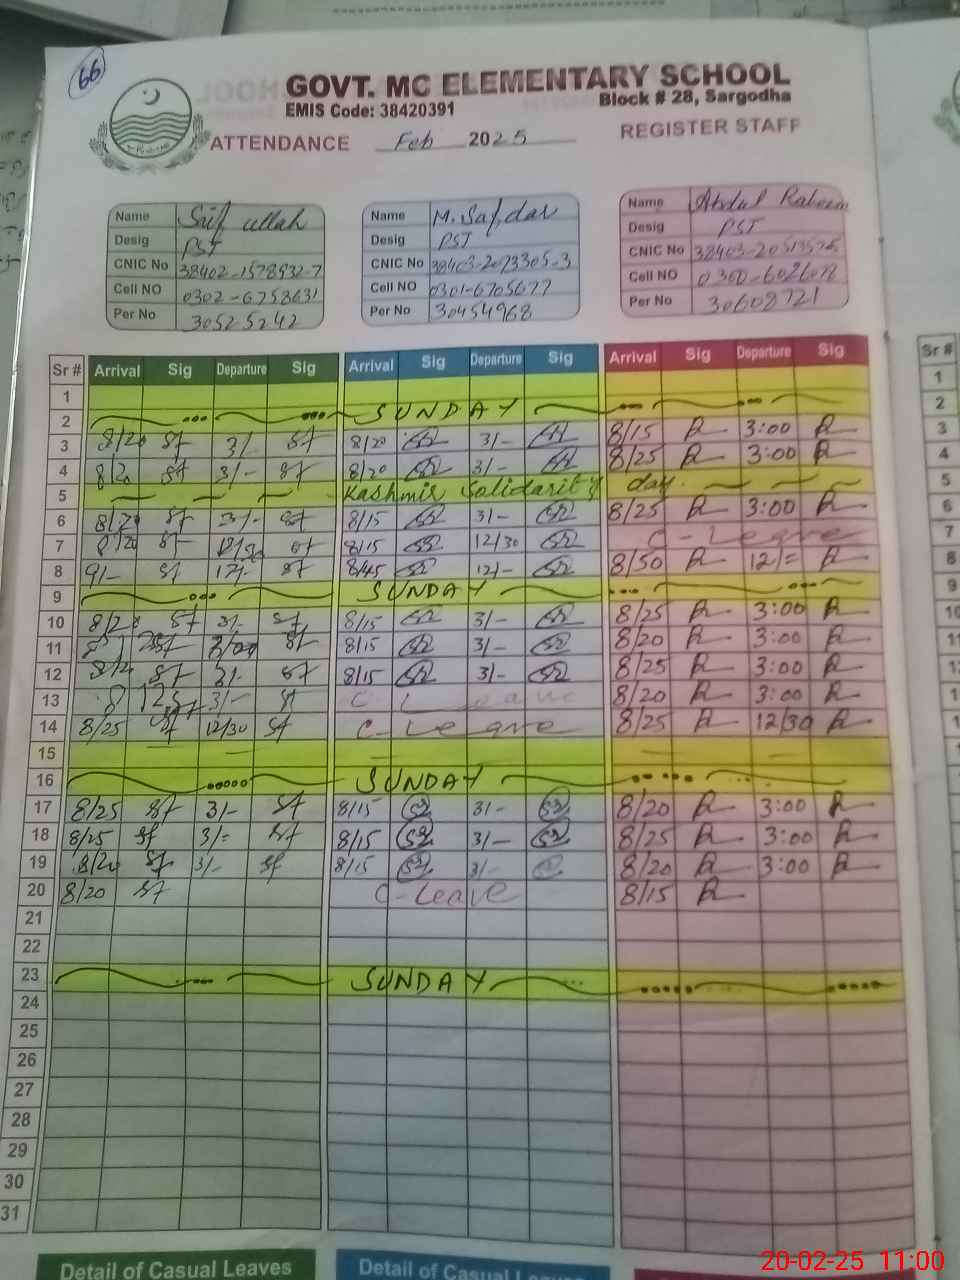 66
GOVT. MC ELEMENTARY SCHOOL
EMIS Code: 38420391 Block # 28, Sargodha
ATTENDANCE Feb 2025 REGISTER STAFF
Name Saif ullah Name M. Safdar Name Abdul Raheem
Desig PST Desig PST Desig PST
CNIC No 38402-1578932-7 CNIC No 38403-2073305-3 CNIC No
Cell NO 0302-6758631 Cell NO 0301-6705677 Cell NO
Per No 30525242 Per No 30454968 Per No 30608721
Sr # Arrival Sig Departure Sig Arrival Sig Departure Sig Arrival Sig Departure Sig Sr #
1 1
2 SUNDAY 2
3 8/20 Sf 3/- Sf 8/20 3/- 8/15 R 3:00 R 3
4 8/20 Sf 3/- Sf 8/20 3/- 8/25 R 3:00 R 4
5 Kashmir Solidarity day. 5
6 8/20 Sf 3/- Sf 8/15 3/- 8/25 R 3:00 R 6
7 8/20 Sf 12/30 Sf 8/15 12/30 C-Leave 7
8 9/- Sf 12/- Sf 8/45 12/- 8/50 R 12/= R 8
9 SUNDAY 9
10 Sf 3/- Sf 8/15 3/- 8/25 R 3:00 R 10
11 Sf 3/00 Sf 8/15 3/- 8/20 R 3:00 R 11
12 8/20 Sf 3/- Sf 8/15 3/- 8/25 R 3:00 R
13 3/- Sf C-Leave 8/20 R 3:00 R
14 8/25 Sf 12/30 Sf C-Leave 8/25 R 12/30 R
15
16 SUNDAY
17 8/25 Sf 3/- Sf 8/15 3/- 8/20 R 3:00 R
18 8/25 Sf 3/= Sf 8/15 3/- 8/25 R 3:00 R
19 8/20 Sf 3/- Sf 8/15 3/- 8/20 R 3:00 R
20 8/20 Sf C-Leave 8/15 R
21
22
23 SUNDAY
24
25
26
27
28
29
30
31
Detail of Casual Leaves Detail of Casual Leaves
20-02-25 11:00